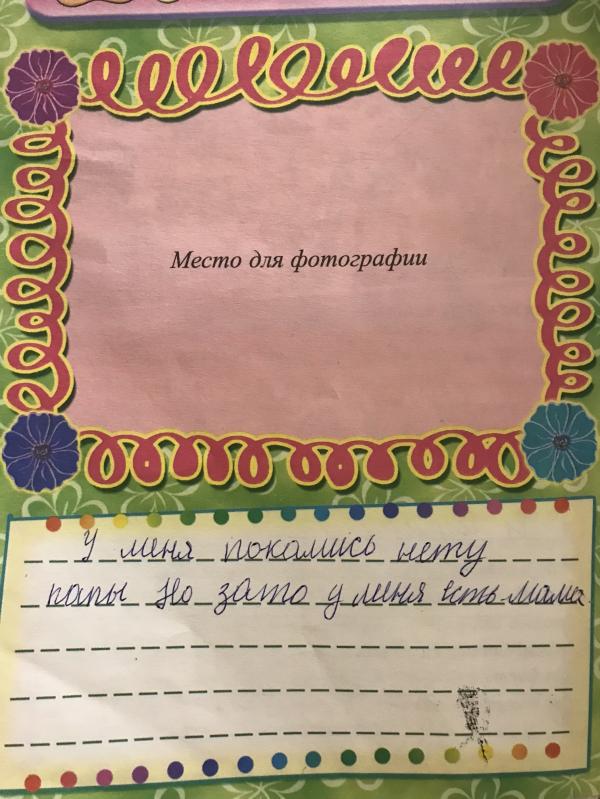 Место для фотографии
У меня покамись нету
папы Но зато у меня есть мама